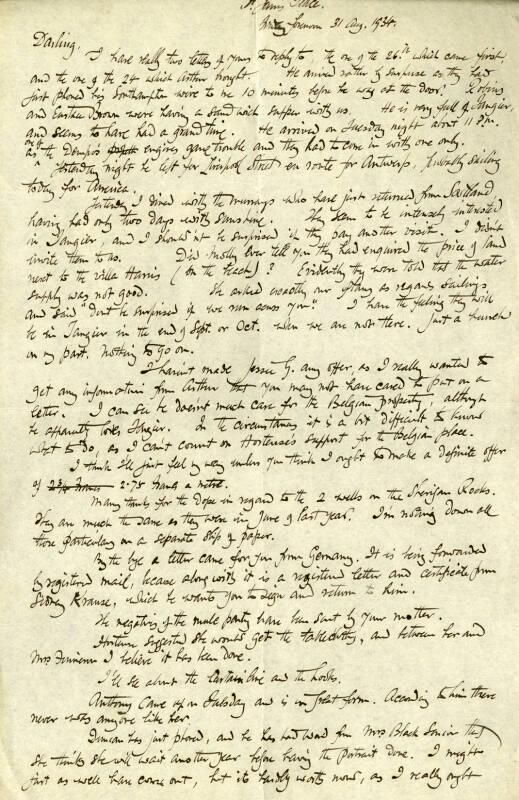 St. James Place.
Friday forenoon 31 Aug. 1934.
Darling.
I have really two letters of yours to reply to, the one of the 26th which came first
and the one of the 24 which Arthur brought. He arrived rather by surprise as they had
just phoned big Southampton were to me 10 minutes before he was at the door!
and Eastlea Brown were having a sandwich supper with us. He is very full of Tangier,
and seems to have had a grand time. He arrived on Tuesday night about 11 P.M.
as one of the Dempo's engines gave trouble and they had to come in with one only.
Yesterday night he left for Liverpool Street en route for Antwerp, probably sailing
today for America.
Yesterday I dined with the Murrays who have just returned from Scotland
having had only two days with sunshine. They seem to be intensely interested
in Tangier, and I shouldn't be surprised if they pay another visit. I didn't
invite them to us. Did Molly ever tell you they had enquired the price of land
next to the Villa Harris (on the beach)? Evidently they were told that the water
supply was not good. She asked exactly our plans as regards sailings,
and said "Don't be surprised if we run across you". I have the feeling they will
be in Tangier in the end of Sept. or Oct. when we are not there. Just a hunch
on my part. Nothing to go on.
I haven't made Jessie G. any offer, as I really wanted to
get any information from Arthur that you may not have cared to put in a
letter. I can see he doesn't much care for the Belgian property, although
he apparently loves Tangier. In the circumstances it is a bit difficult to know
what to do, as I can't count on Hortense's support for the Belgian place.
I think I'll just feel my way unless you think I ought to make a definite offer
of 2.75 francs a metre.
Many thanks for the dope in regard to the 2 wells on the Sherifian Rocks.
They are much the same as they were in June of last year. I'm noting down all
those particulars on a separate slip of paper.
By the bye a letter came for you from Germany. It is being forwarded
by registered mail, because along with it is a registered letter and certificate from
Sidney Krause, which he wants you to sign and return to him.
The negatives of the mule party have been sent by your mother.
Hortense suggested she would get the tablecloths, and between her and
Mrs I believe it has been done.
I'll see about the curtain line and the hooks.
Anthony came up on Tuesday and is in great form. According to him there
never was anyone like her.
Duncan has just phoned, and he has had word from Mrs Black Sinclair that
she thinks she will wait another year before having the portrait done. I might
just as well have come out, but it's hardly worth now, as I really ought